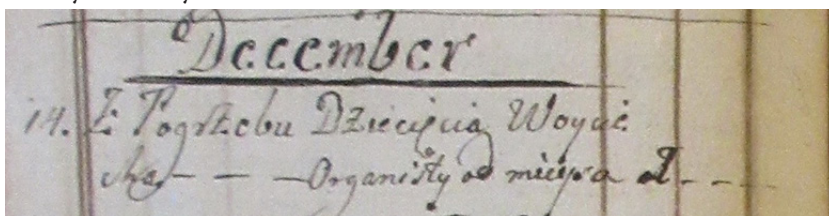 December
14. Z Pogrzebu Dziecięcia Woycie
cha — — — Organisty od mieysca